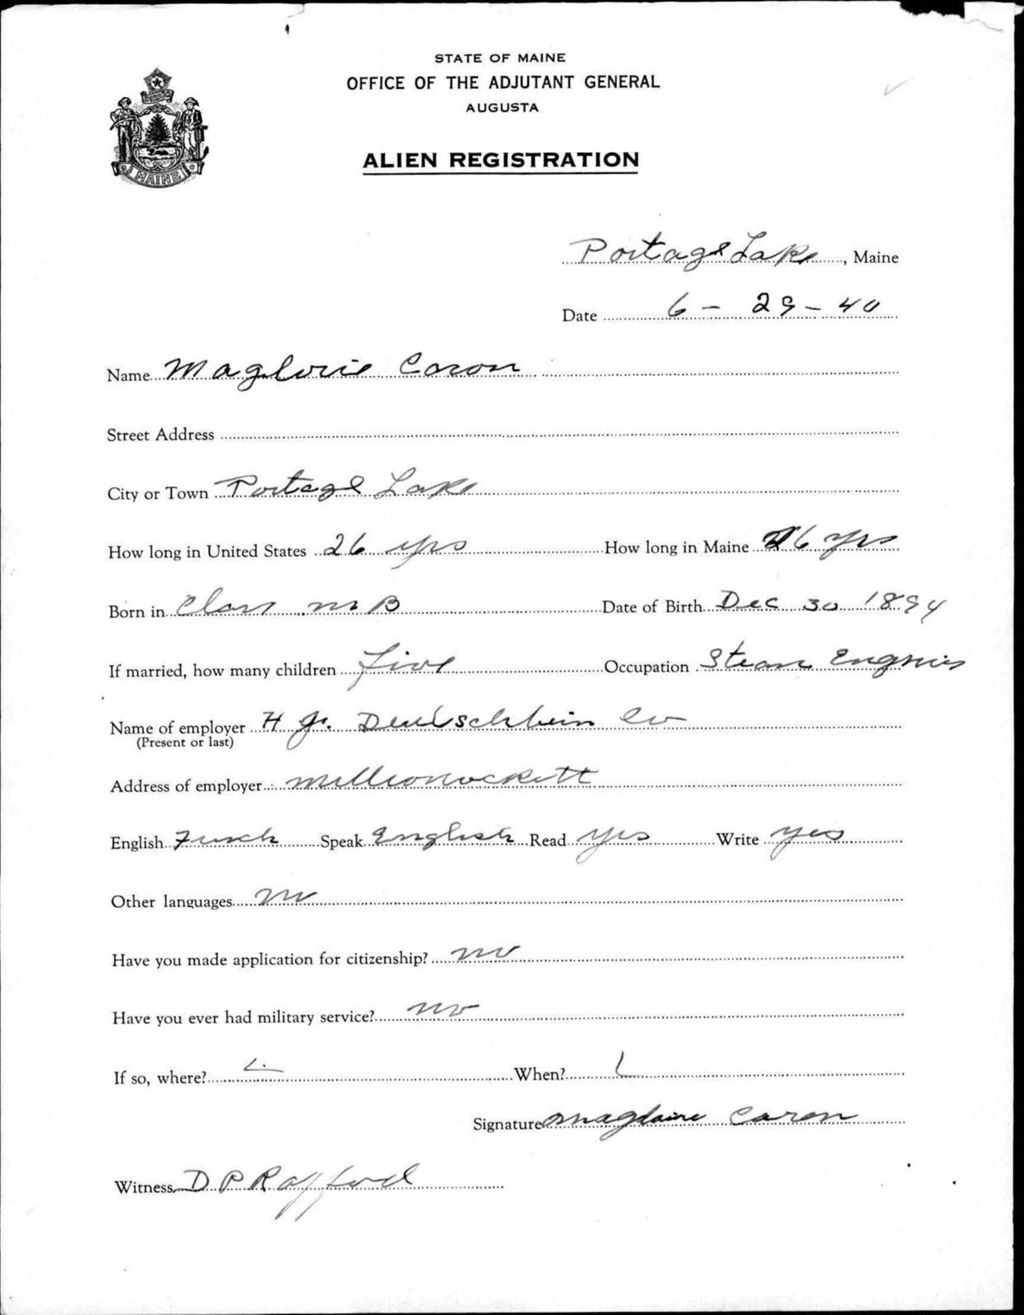 STATE OF MAINE
OFFICE OF THE ADJUTANT GENERAL
AUGUSTA
ALIEN REGISTRATION
MAINE
Portage Lake, Maine
Date 6 - 29 - 40
Name Maglorie Caron
Street Address
City or Town Portage Lake
How long in United States 26 yrs How long in Maine 26 yrs
Born in Clair N B Date of Birth Dec 30 1894
If married, how many children Five Occupation Steam Engineer
Name of employer H J. Deutschbein Co
(Present or last)
Address of employer Millionockett
English French Speak English Read Yes Write Yes
Other languages No
Have you made application for citizenship? No
Have you ever had military service? No
If so, where? When?
Signature Maglaire Caron
Witness D P Rafford